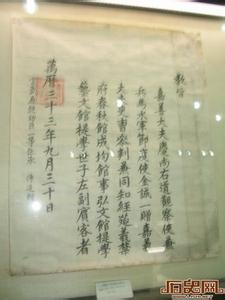 教旨
嘉善大夫慶尚右道觀察使兼
兵馬水軍節度使金誠一贈嘉義
大夫吏曹參判兼同知經筵義禁
府春秋館成均館事弘文館提學
藝文館提學世子左副賓客者
萬曆三十三年九月三十日
历史网